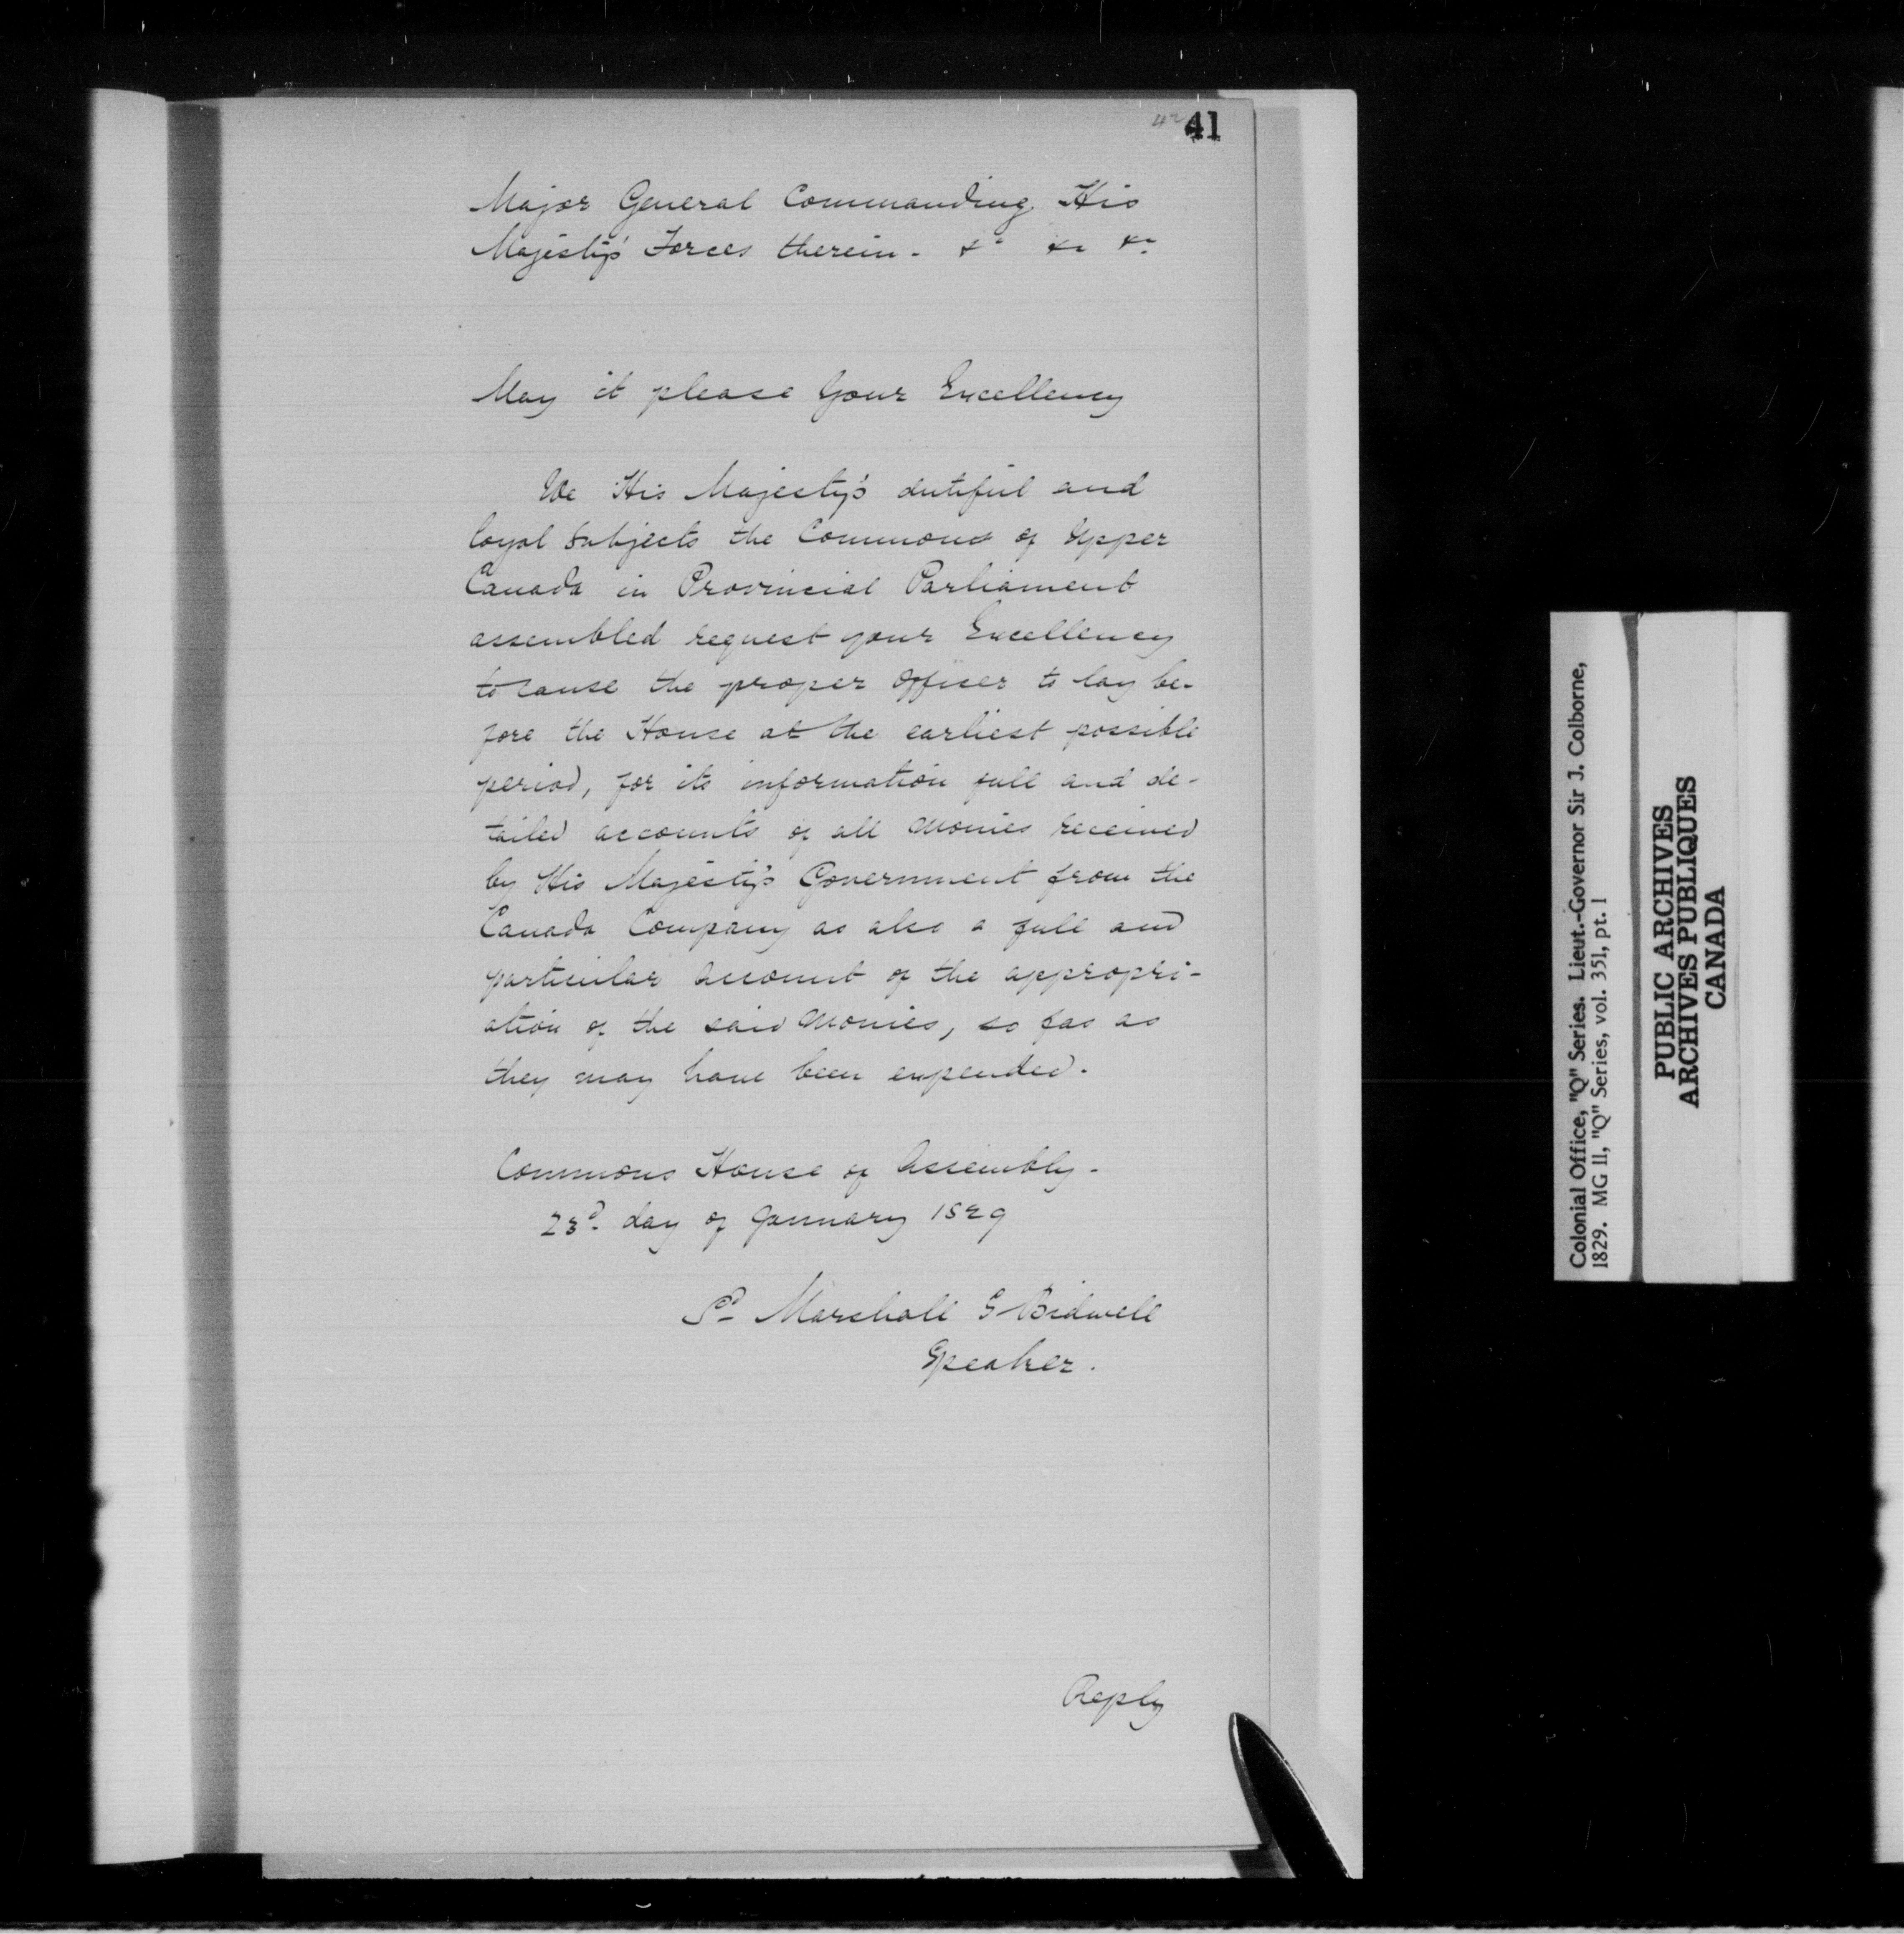 41
Major General Commanding His
Majesty's Forces therein. &c &c &c
May it please Your Excellency
We His Majesty's dutiful and
loyal subjects the Commons of Upper
Canada in Provincial Parliament
assembled request your Excellency
to cause the proper Officer to lay be-
fore the House at the earliest possible
period, for its information full and de-
tailed accounts of all Monies received
by His Majesty's Government from the
Canada Company as also a full and
particular Account of the appropri-
ation of the said Monies, so far as
they may have been expended.
Commons House of Assembly.
23d. day of January 1829
Sd Marshall S Bidwell
Speaker.
Reply
Colonial Office, "Q" Series. Lieut.-Governor Sir J. Colborne,
1829. MG 11, "Q" Series, vol. 351, pt. 1
PUBLIC ARCHIVES
ARCHIVES PUBLIQUES
CANADA